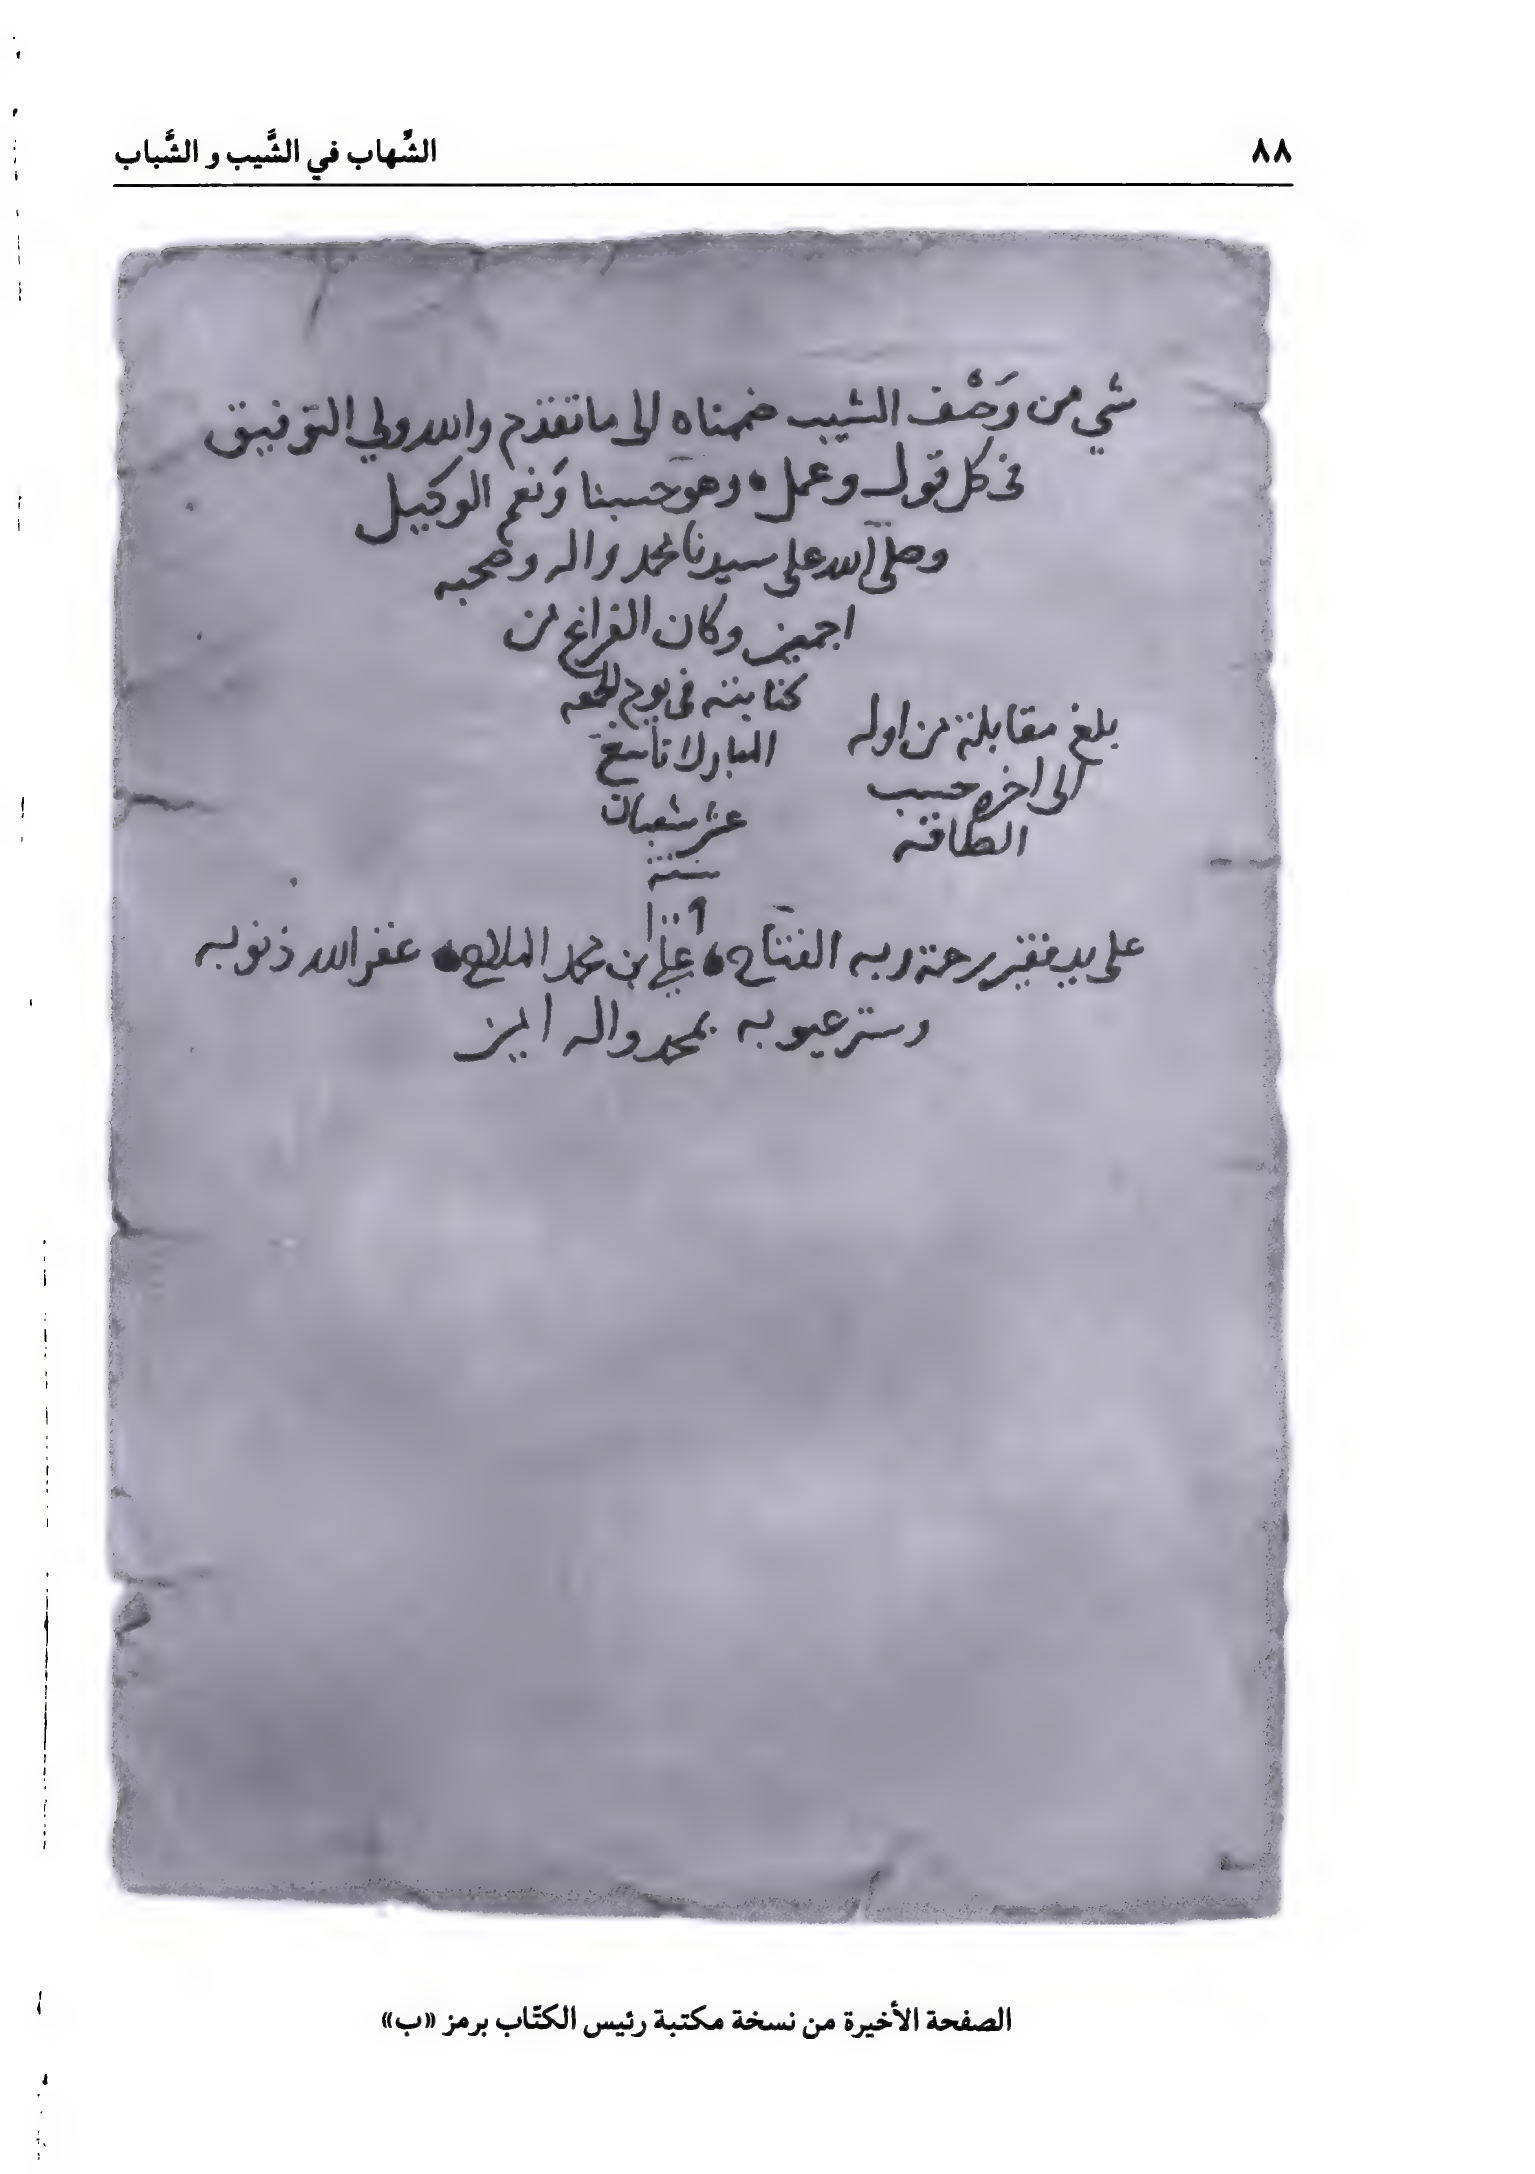 ٨٨
الشِّهاب في الشَّيب و الشَّباب
شي من وَصْف الشيب ضمناه الى ما تقدم والله ولي التوفيق
في كل قول وعمل وهو حسبنا وَنعم الوكيل
وصلى الله على سيدنا محمد واله وصحبه
اجمعين وكان الفراغ من
كتابته في يوم الجمعه
المبارك تاسع
عشر شعبان
سنة
بلغ مقابلة من اوله
الى اخره حسب
الطاقة
على يد فقير رحمة ربه الفتاح علي بن محمد الملاح غفر الله ذنوبه
وستر عيوبه بمحمد واله امين
الصفحة الأخيرة من نسخة مكتبة رئيس الكتّاب برمز «ب»